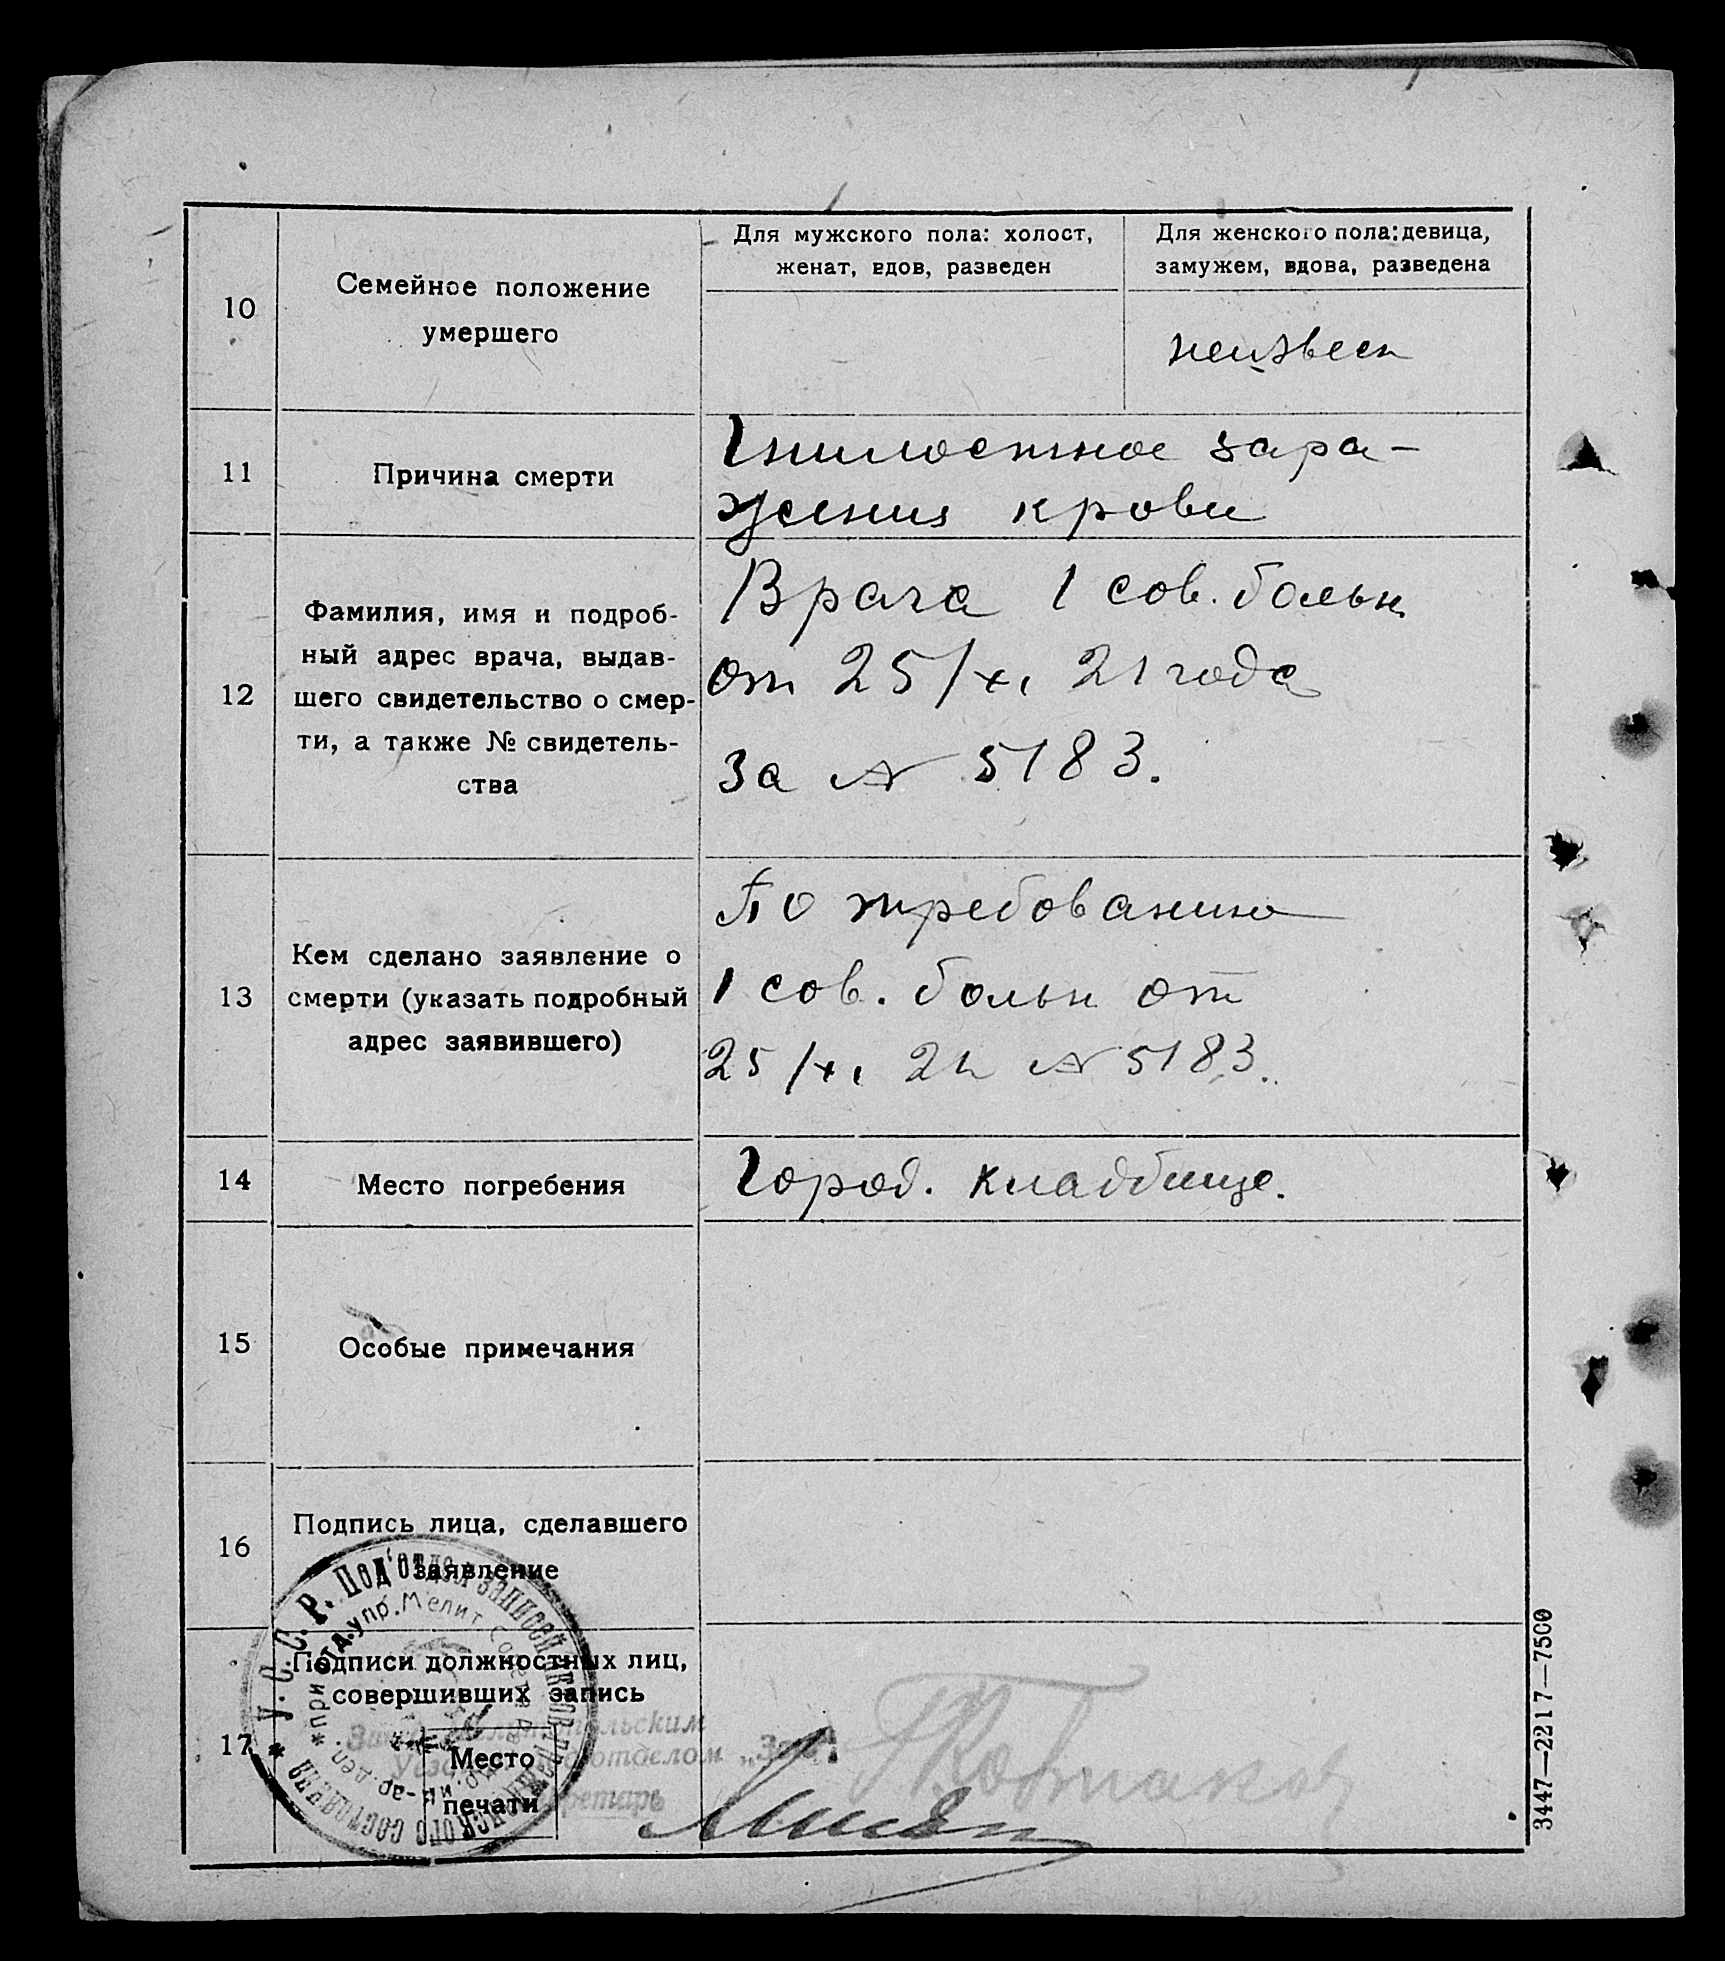 10
Семейное положение
умершего
Для мужского пола: холост,
женат, вдов, разведен
Для женского пола: девица,
замужем, вдова, разведена
неизвесн
11
Причина смерти
Гнилостное зара-
жения крови
12
Фамилия, имя и подроб-
ный адрес врача, выдав-
шего свидетельство о смер-
ти, а также № свидетель-
ства
Врача 1 сов. больн
от 25/XI 21 года
За № 5183.
13
Кем сделано заявление о
смерти (указать подробный
адрес заявившего)
По требованию
1 сов. больн от
25/XI 21 № 5183.
14
Место погребения
Город. кладбище.
15
Особые примечания
16
Подпись лица, сделавшего
заявление
17
Подписи должностных лиц,
совершивших запись
Место
печати
У.С.С.Р. Под'отдел записей актов гражданского состояния
при отд. упр. Мелит.
отделом
Секретарь
3447—2217—7500